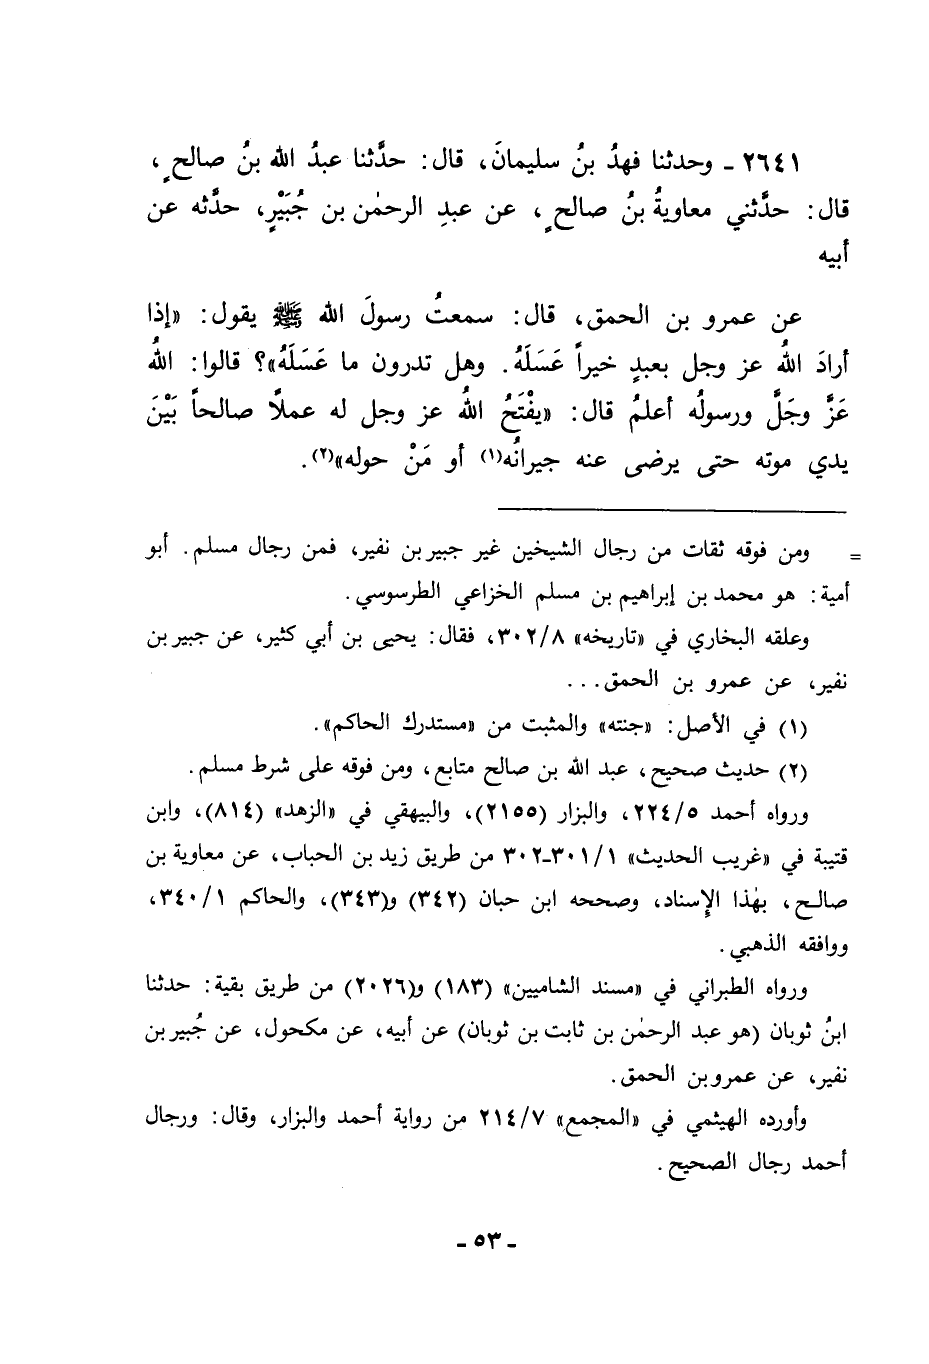 ٢٦٤١ ـ وحدثنا فهدُ بنُ سليمانَ، قال: حدَّثنا عبدُ الله بنُ صالحٍ،
قال: حدَّثني معاويةُ بنُ صالحٍ، عن عبدِ الرحمٰن بن جُبَيْرٍ، حدَّثه عن
أبيه
عن عمرو بن الحمق، قال: سمعتُ رسولَ الله ﷺ يقول: «إذا
أرادَ اللهُ عز وجل بعبدٍ خيراً عَسَلَهُ. وهل تدرون ما عَسَلَهُ»؟ قالوا: اللهُ
عَزَّ وجَلَّ ورسولُه أعلمُ قال: «يفْتَحُ اللهُ عز وجل له عملًا صالحاً بَيْنَ
يدي موته حتى يرضى عنه جيرانُه(١) أو مَنْ حوله»(٢).
= ومن فوقه ثقات من رجال الشيخين غير جبير بن نفير، فمن رجال مسلم. أبو
أمية: هو محمد بن إبراهيم بن مسلم الخزاعي الطرسوسي.
وعلقه البخاري في «تاريخه» ٣٠٢/٨، فقال: يحيى بن أبي كثير، عن جبير بن
نفير، عن عمرو بن الحمق...
(١) في الأصل: «جنته» والمثبت من «مستدرك الحاكم».
(٢) حديث صحيح، عبد الله بن صالح متابع، ومن فوقه على شرط مسلم.
ورواه أحمد ٢٢٤/٥، والبزار (٢١٥٥)، والبيهقي في «الزهد» (٨١٤)، وابن
قتيبة في «غريب الحديث» ٣٠١/١ـ٣٠٢ من طريق زيد بن الحباب، عن معاوية بن
صالح، بهٰذا الإِسناد، وصححه ابن حبان (٣٤٢) و(٣٤٣)، والحاكم ٣٤٠/١،
ووافقه الذهبي.
ورواه الطبراني في «مسند الشاميين» (١٨٣) و(٢٠٢٦) من طريق بقية: حدثنا
ابنُ ثوبان (هو عبد الرحمٰن بن ثابت بن ثوبان) عن أبيه، عن مكحول، عن جُبير بن
نفير، عن عمرو بن الحمق.
وأورده الهيثمي في «المجمع» ٢١٤/٧ من رواية أحمد والبزار، وقال: ورجال
أحمد رجال الصحيح.
ـ ٥٣ ـ